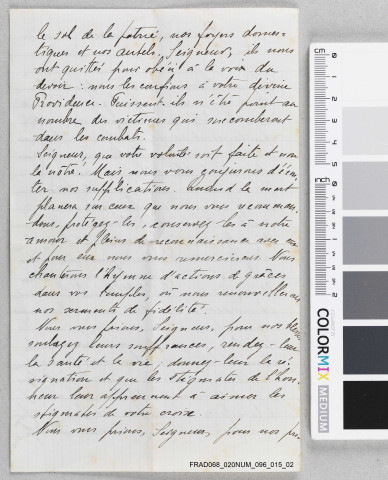 le sol de la patrie, nos foyers domes-
tiques et nos autels. Seigneur, ils nous
ont quittés pour obéir à la voix du
devoir : nous les confions à votre divine
Providence. Puissent-ils n'être point au
nombre des victimes qui succomberont
dans les combats.
Seigneur, que votre volonté soit faite et non
la nôtre. Mais nous vous conjurons d'écou-
ter nos supplications. Quand la mort
planera sur ceux que nous vous recomman-
dons, protégez-les, conservez-les à notre
amour et pleins de reconnaissance avec eux
et pour eux nous vous remercierons. Nous
chanterons l'hymne d'actions de grâces
dans vos temples, où nous renouvellerons
nos serments de fidélité.
Nous vous prions, Seigneur, pour nos blessés
soulagez leurs souffrances, rendez-leur
la santé et la vie, donnez-leur la ré-
signation et que les stigmates de l'hon-
neur leur apprennent à aimer les
stigmates de votre croix.
Nous vous prions, Seigneur, pour nos
cm
0
1
2
3
4
5
COLORMIX MEDIUM
FRAD068_020NUM_096_015_02